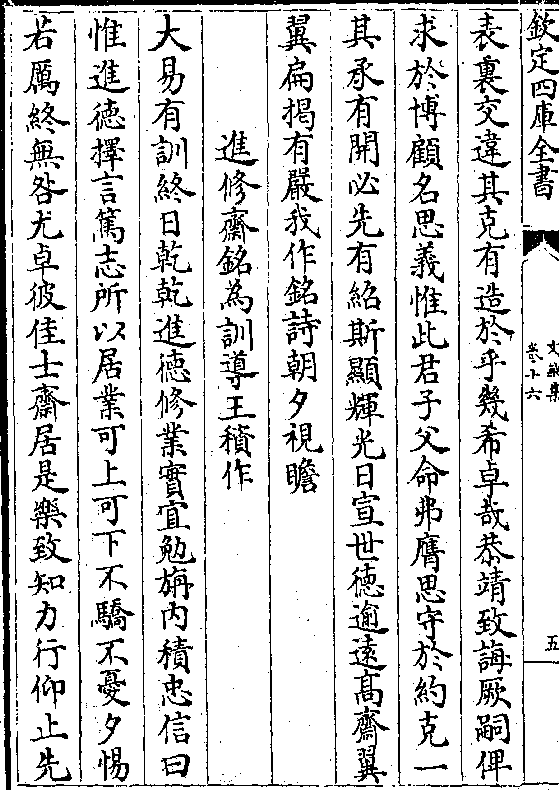 欽定四庫全書
卷十六
五
表裏交違其克有造於乎幾希卓哉恭靖致誨厥嗣俾
求於博顧名思義惟此君子父命弗膺思守於約克一
其承有開必先有紹斯顯輝光日宣世德逾遠髙齋翼
翼扁掲有嚴我作銘詩朝夕視瞻
進修齋銘為訓導王積作
大易有訓終日乾乾進德修業實宜勉旃内積忠信曰
惟進德擇言篤志所以居業可上可下不驕不憂夕惕
若厲終無咎尤卓彼佳士齋居是樂致知力行仰止先